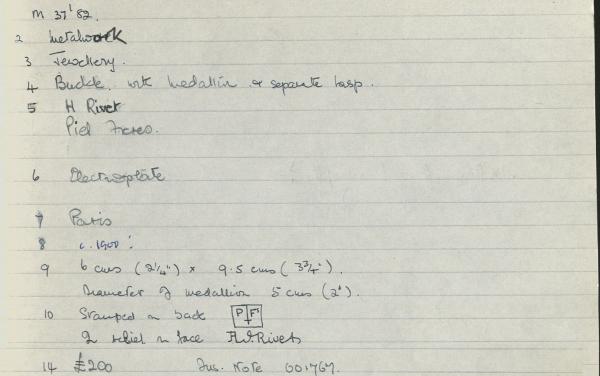 M 37'82.
2 Metalwork
3 Jewellery.
4 Buckle with medallion & separate hasp.
5 H Rivet
Piel Freres.
6 Electroplate
7 Paris
8 c. 1900
9 6 cms (2¼") x 9.5 cms (3¾").
Diameter of medallion 5 cms (2").
10 Stamped on back PF
relief on face Rivet
14 £200 Ins. Note 001767.